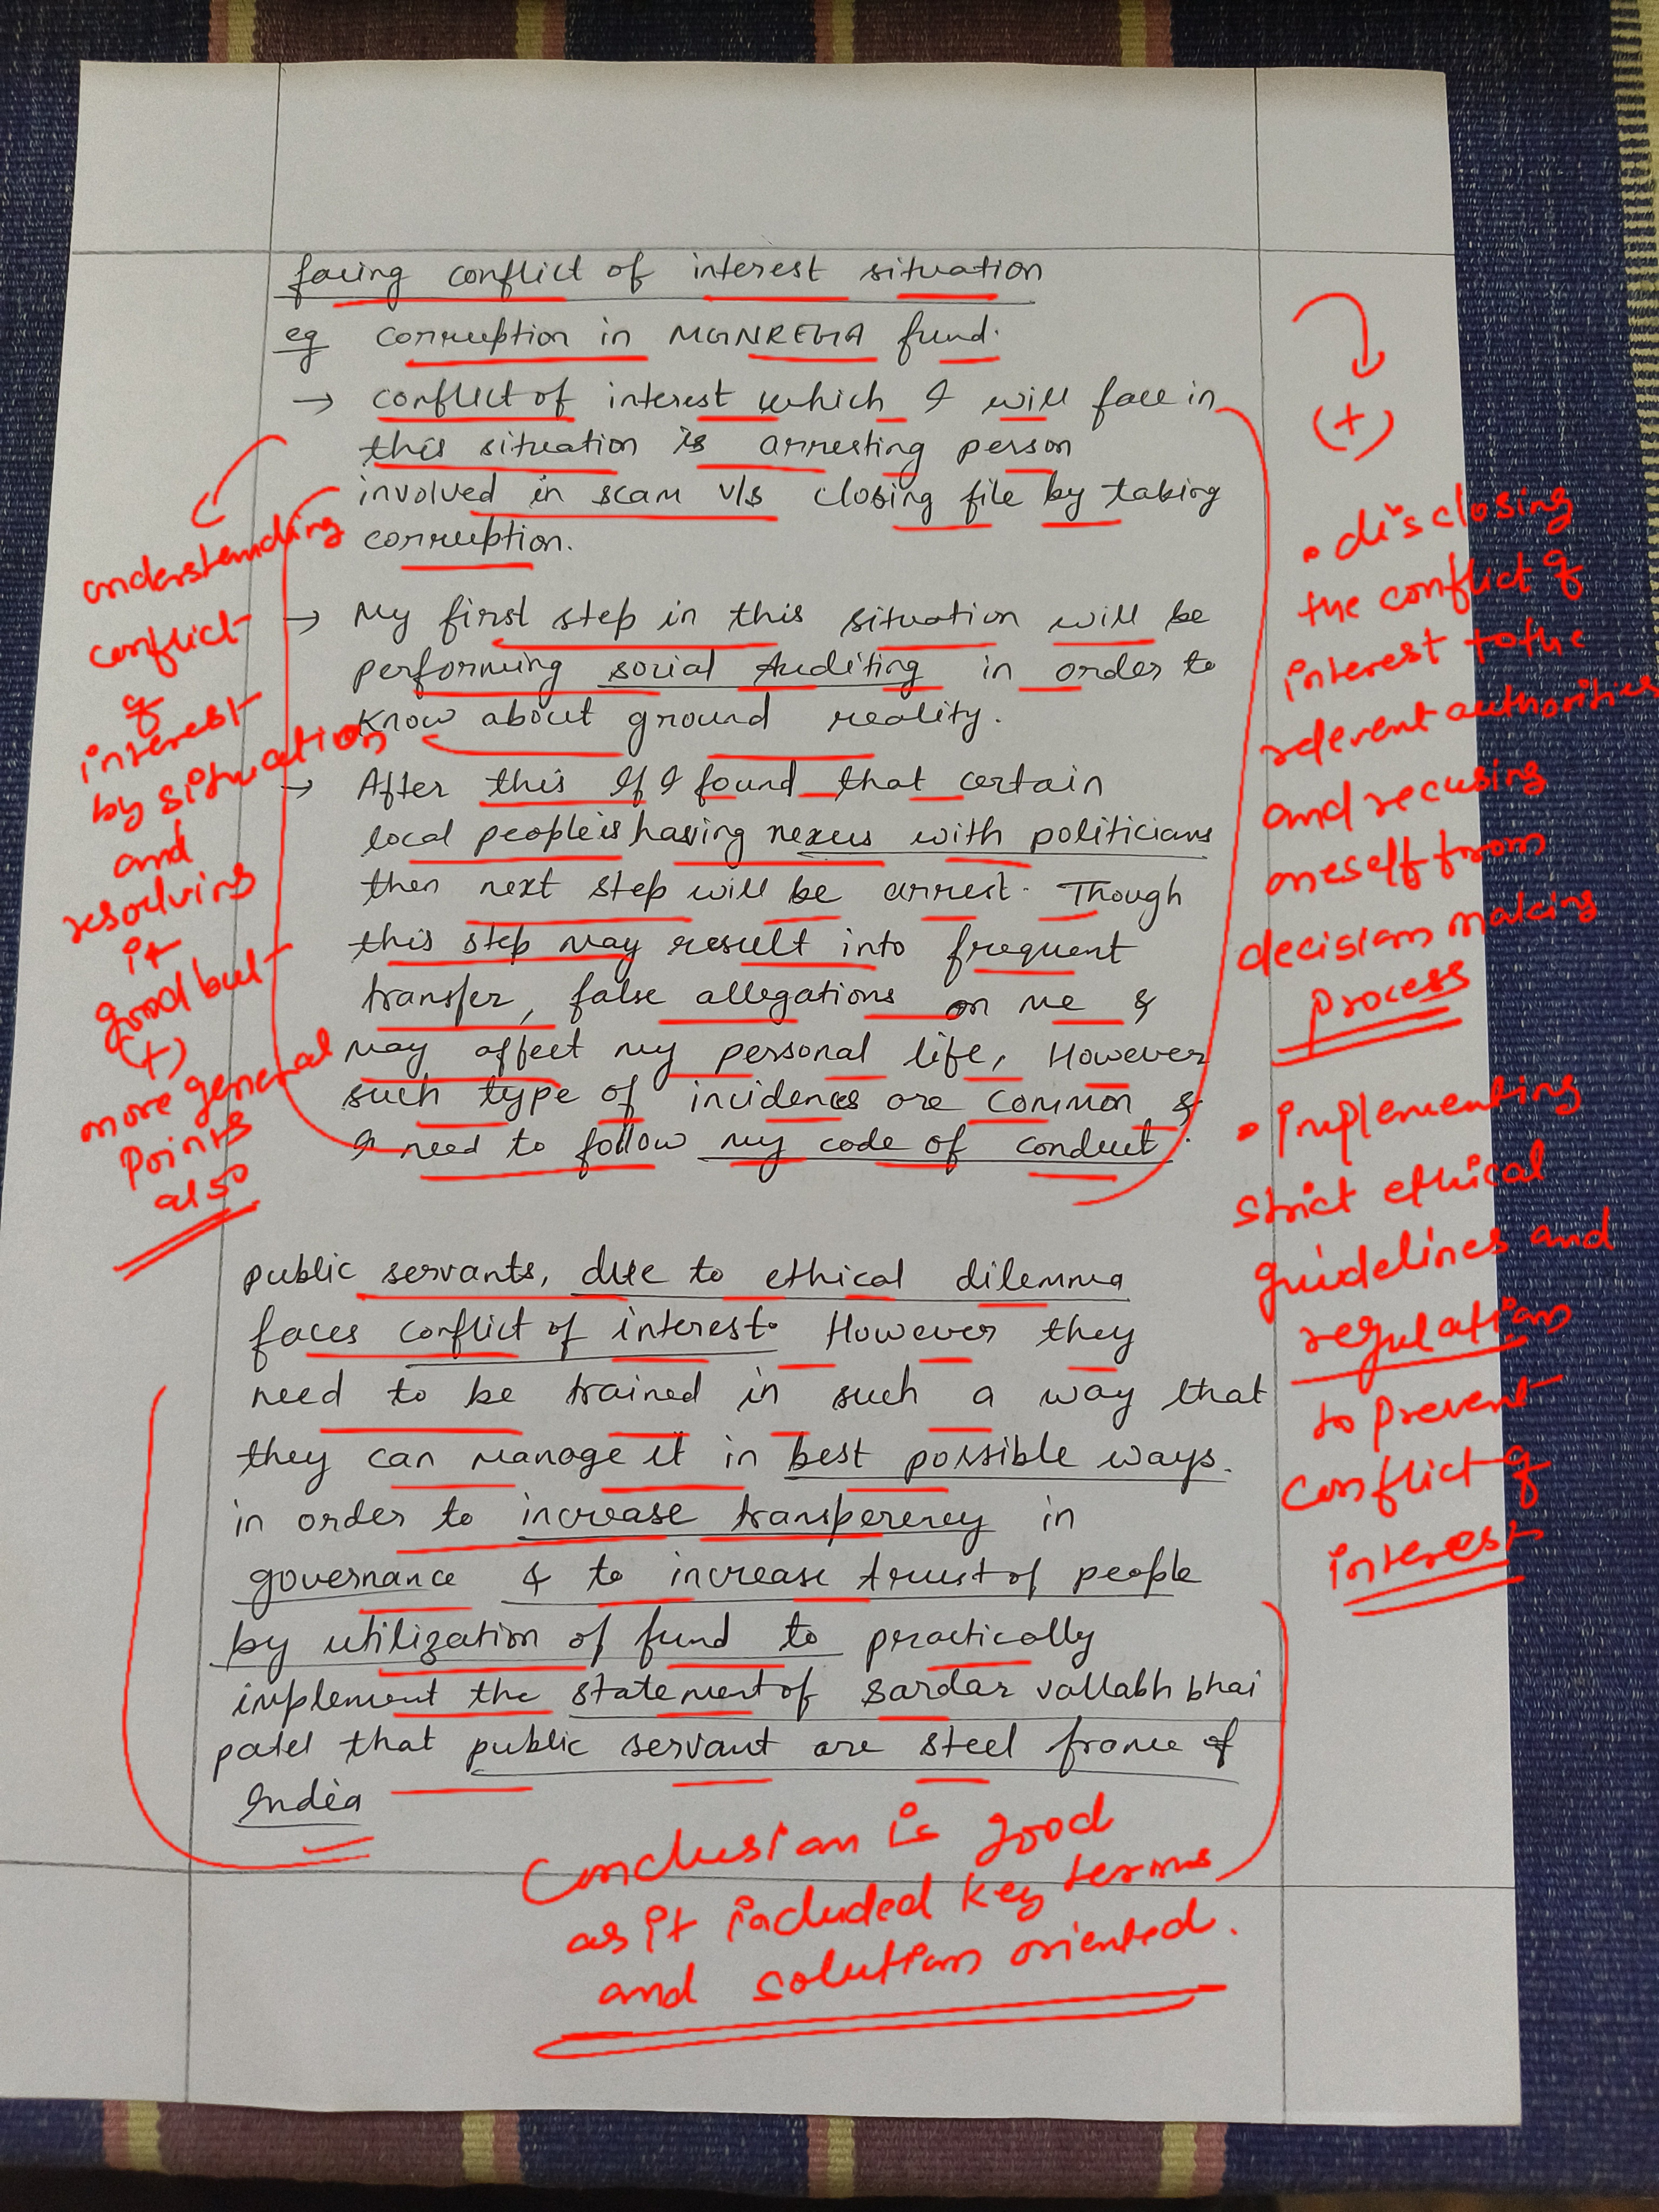 facing conflict of interest situation
eg corruption in MGNREGA fund.
→ conflict of interest which I will face in
this situation is arresting person
involved in scam v/s closing file by taking
corruption.
→ My first step in this situation will be
performing social Auditing in order to
know about ground reality.
→ After this If I found that certain
local people is having nexus with politicians
then next step will be arrest. Though
this step may result into frequent
transfer, false allegations on me &
may affect my personal life, However
such type of incidences are common &
I need to follow my code of conduct.
public servants, due to ethical dilemma
faces conflict of interest. However they
need to be trained in such a way that
they can manage it in best possible ways.
in order to increase transperency in
governance & to increase trust of people
by utilization of fund to practically
implement the statement of Sardar vallabh bhai
patel that public servant are steel frame of
India
understanding
conflict
of
interest
by situation
and
resolving
it
good but
(+)
more general
points
also
(+)
• disclosing
the conflict of
interest to the
relevent authorities
and recusing
oneself from
decision making
process
• implementing
strict ethical
guidelines and
regulation
to prevent
conflict of
interest
Conclusion is good
as it included key terms
and solution oriented.